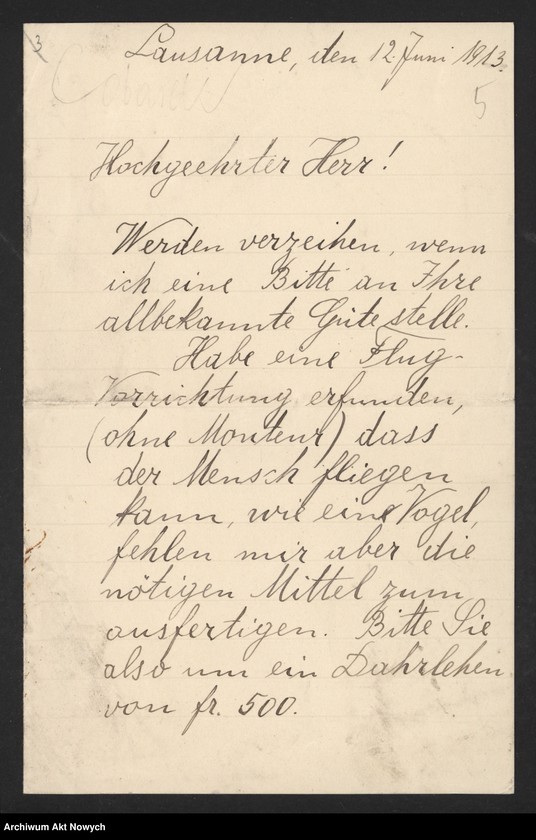 3
Lausanne, den 12. Juni 1913.
5
Hochgeehrter Herr!
Werden verzeihen, wenn
ich eine Bitte an Ihre
allbekannte Güte stelle.
Habe eine Flug-
Vorrichtung erfunden,
(ohne Monteur) dass
der Mensch fliegen
kann, wie eine Vogel,
fehlen mir aber die
nötigen Mittel zum
ausfertigen. Bitte Sie
also um ein Dahrlehen
von fr. 500.
Archiwum Akt Nowych